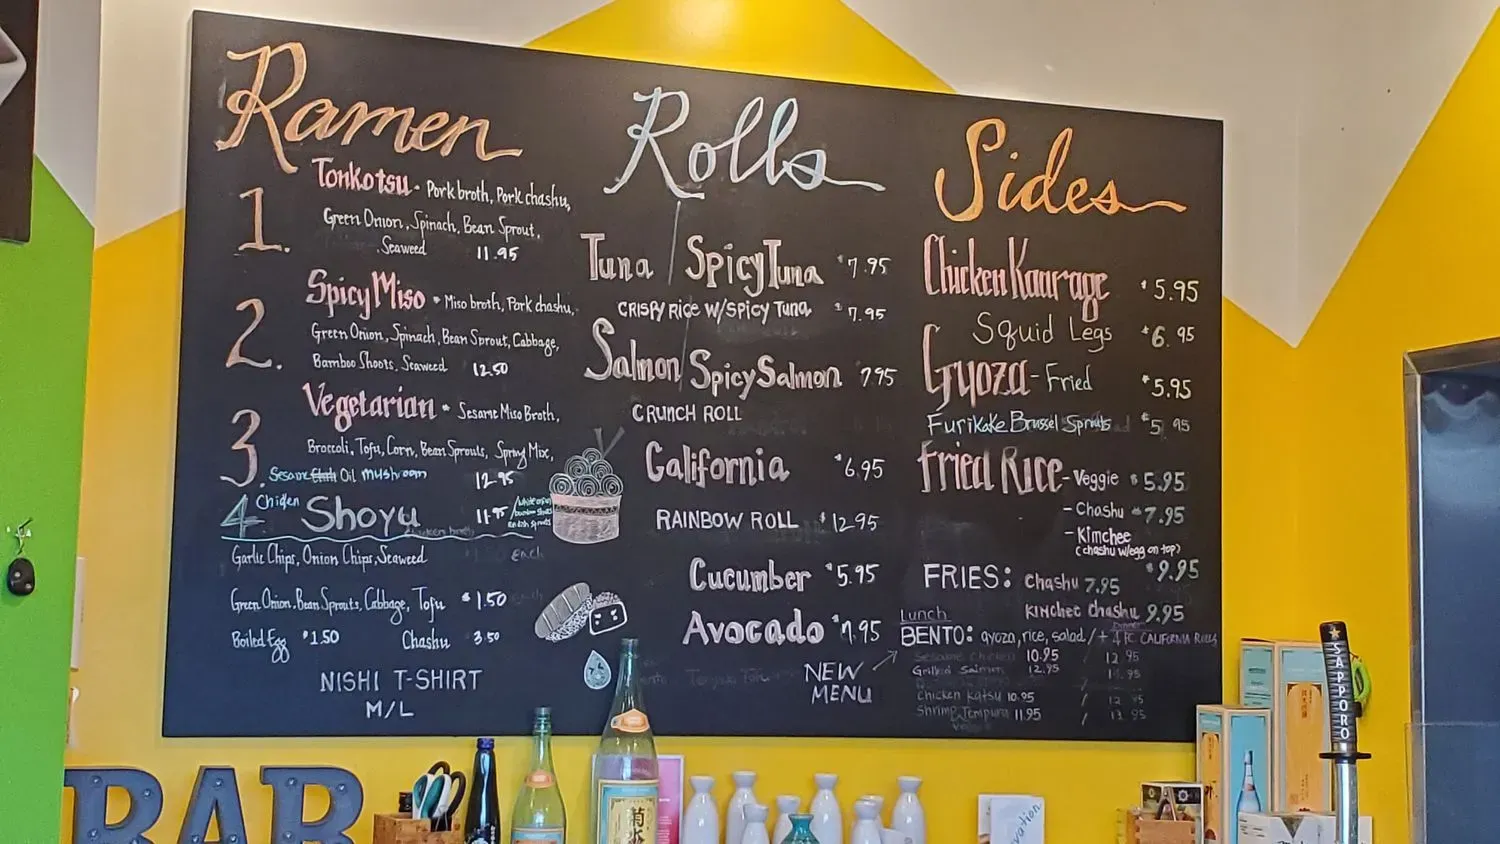 Ramen
1. Tonkotsu - Pork broth, Pork chashu,
Green Onion, Spinach, Bean Sprout,
Seaweed 11.95
2. Spicy Miso - Miso broth, Pork chashu,
Green Onion, Spinach, Bean Sprout, Cabbage,
Bamboo Shoots, Seaweed 12.50
3. Vegetarian - Sesame Miso Broth,
Broccoli, Tofu, Corn, Bean Sprouts, Spring Mix,
Sesame Oil mushroom 12.95
4 Chicken Shoyu 11.95
chicken broth
each
Garlic Chips, Onion Chips, Seaweed
Green Onion, Bean Sprouts, Cabbage, Tofu $1.50
Boiled Egg $1.50 Chashu 3.50
NISHI T-SHIRT
M/L
Rolls
Tuna / Spicy Tuna $7.95
CRISPY RICE W/SPICY TUNA $7.95
Salmon / Spicy Salmon 7.95
CRUNCH ROLL
California $6.95
RAINBOW ROLL $12.95
Cucumber $5.95
Avocado $7.95
NEW
MENU
Sides
Chicken Kaarage $5.95
Squid Legs $6.95
Gyoza - Fried $5.95
Furikake Brussel Sprouts $5.95
Fried Rice - Veggie $5.95
- Chashu $7.95
- Kimchee
(chashu w/egg on top) $9.95
FRIES: Chashu 7.95
Kimchee Chashu 9.95
Lunch Dinner
BENTO: gyoza, rice, salad / + 4 PC CALIFORNIA ROLLS
Sesame Chicken 10.95 / 12.95
Grilled Salmon 12.95
Chicken Katsu 10.95 / 12.95
Shrimp Tempura 11.95 / 13.95
BAR
SAPPORO
菊水